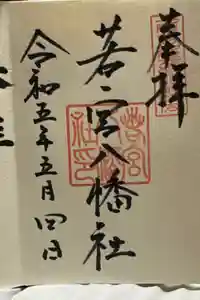 奉拝
若宮八幡社
令和五年五月四日